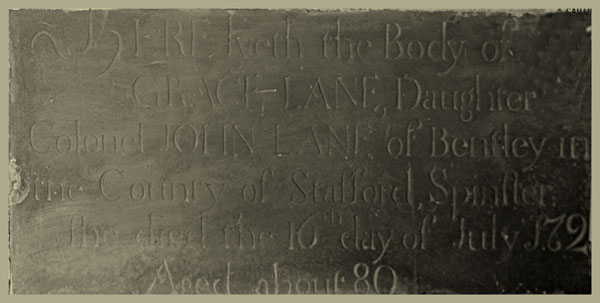 HERE lyeth the Body of
GRACE LANE, Daughter
Colonel JOHN LANE of Bentley in
the County of Stafford, Spinster.
she died the 16th day of July 1721
Aged about 80